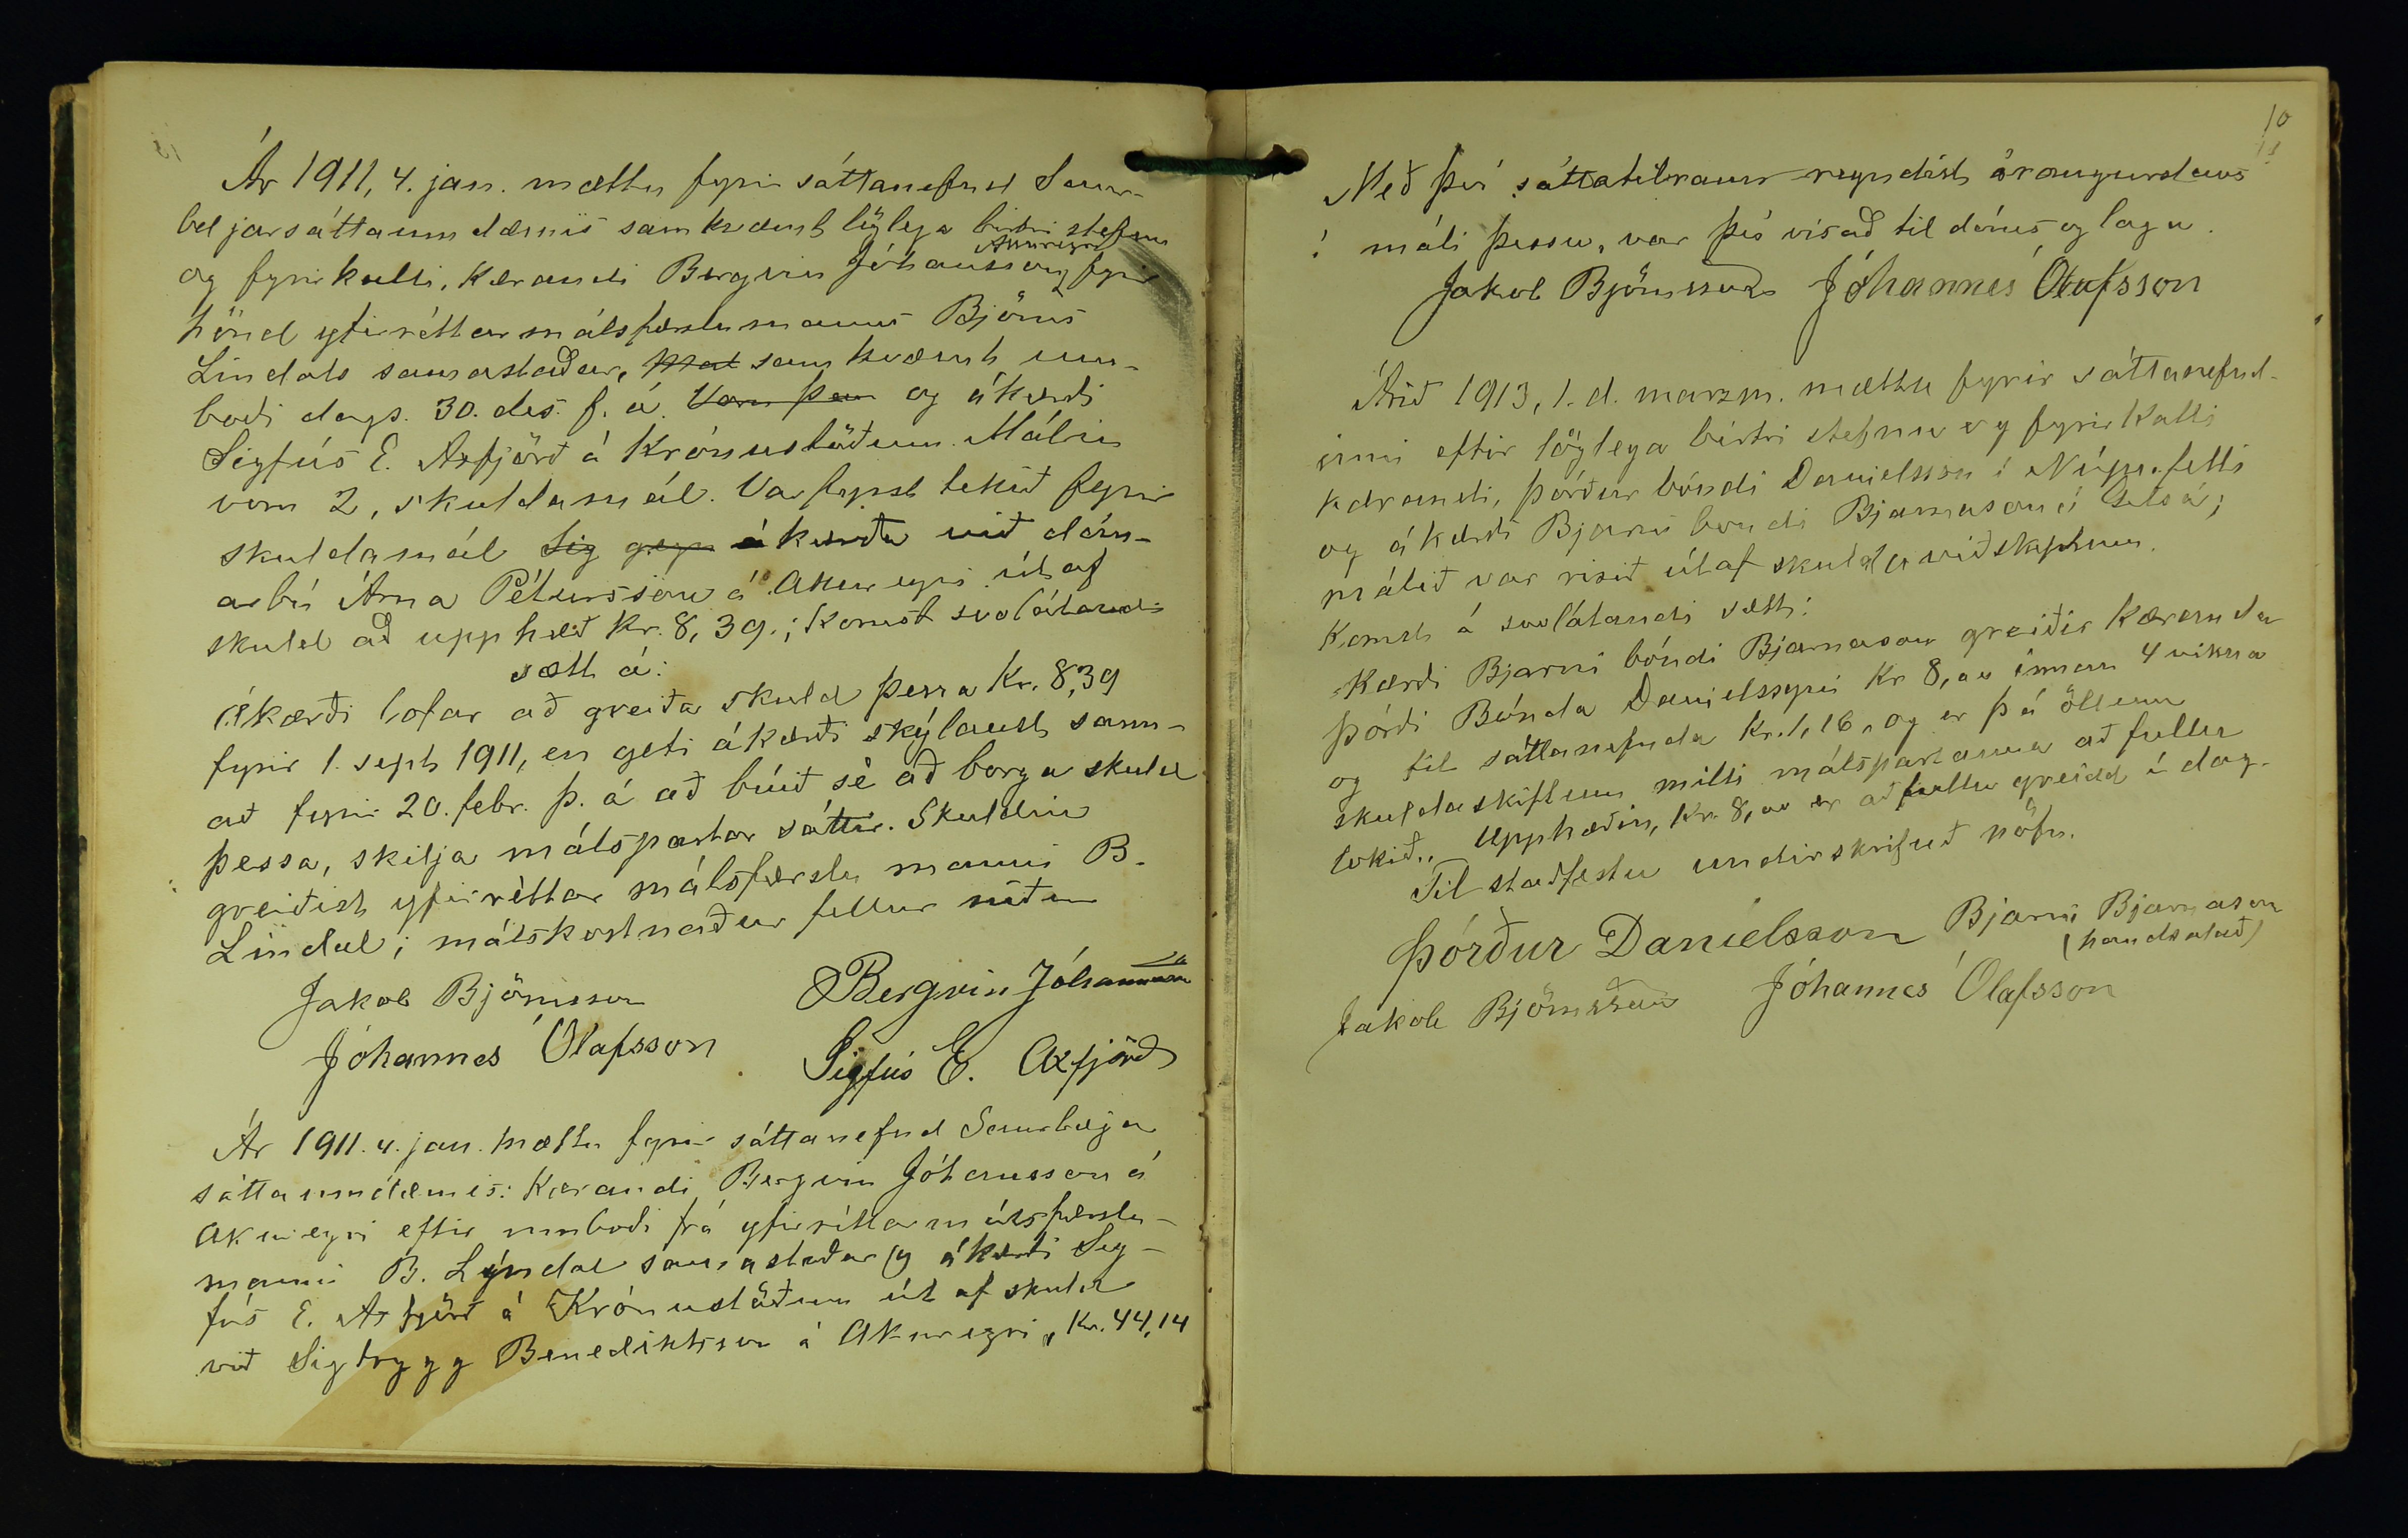 Ár 1911, 4. jan. mættu fyrir sáttanefnd Saur-
bæjarsáttaumdæmis samkvæmt löglega birtri stefnu
og fyrirkalli, kærandi Bergvin Jóhannsson Akureyri fyrir
hönd yfirréttarmálsfærslumanns Björns
Líndals samastaðar, samkvæmt um-
boði dags. 30. des. f. á. Voru þeir og ákærði
Sigfús E. Axfjörð á Krónustöðum. Málin
voru 2, skuldamál. Var fyrst tekið fyrir
skuldamál Sig gegn ákærða við dán-
arbú Árna Péturssonar á Akureyri út af
skuld að upphæð Kr. 8,39.; komst svolátandi
sætt á:
Ákærði lofar að greiða skuld þessa Kr. 8,39
fyrir 1. sept 1911, en geti ákærði skýlaust sann-
að fyrir 20. febr. þ. á að búið sé að borga skuld
þessa, skilja málspartar sáttir. Skuldin
greiðist yfirréttar málsfærslu manni B.
Líndal; málskostnaður fellur niður
Jakob Björnsson Bergvin Jóhannsson
Jóhannes Ólafsson Sigfús E. Axfjörð
Ár 1911. 4. jan. mættu fyrir sáttanefnd Saurbæjar
sáttaumdæmis: Kærandi Bergvin Jóhannsson á
Akureyri eftir umboði frá yfirréttarmálsfærslu-
manni B. Lýndal samastaðar og ákærði Sig-
fús E. Axfjörð á Krónustöðum út af skuld
við Sigtrygg Benediktsson á Akureyri, Kr. 44,14
10
Með því sáttatilraun reyndist árangurslaus
í máli þessu, var því vísað til dóms og laga.
Jakob Björnsson Jóhannes Ólafsson
Árið 1913, 1. d. marzm. mættu fyrir sáttanefnd-
inni eftir löglega birtri stefnu og fyrirkalli
kærandi, Þórður bóndi Daníelsson í Núpufelli
og ákærði Bjarni bóndi Bjarnason á
málið var risið útaf skuldaviðskiptum.
Komst á svolátandi sætt:
Kærði Bjarni bóndi Bjarnason greiðir kæranda
Þórði Bónda Daníelssyni Kr 8,00 innan 4 vikna
og til sáttanefnda Kr. 1,16, og er þá öllum
skuldaskiftum milli málspartanna að fullu
lokið. Upphæðin, Kr. 8,00 er að fullu greidd í dag.
Til staðfestu undirskrifuð nöfn.
Þórður Daníelsson Bjarni Bjarnason
(handsalað)
Jakob Björnsson Jóhannes Ólafsson